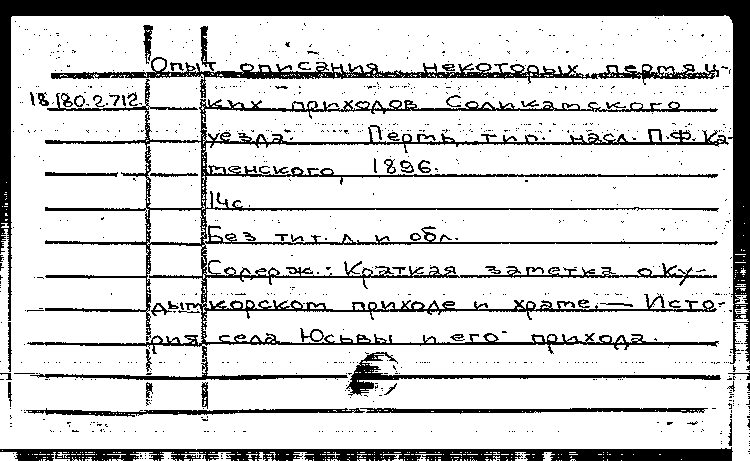 Опыт описания некоторых пермяц-
18.180.2.712 ких приходов Соликамского
уезда. Пермь, тип. насл. П.Ф. Ка-
менского, 1896.
14с.
Без тит. л. и обл.
Содерж.: Краткая заметка о Ку-
дымкорском приходе и храме. — Исто-
рия села Юсьвы и его прихода.